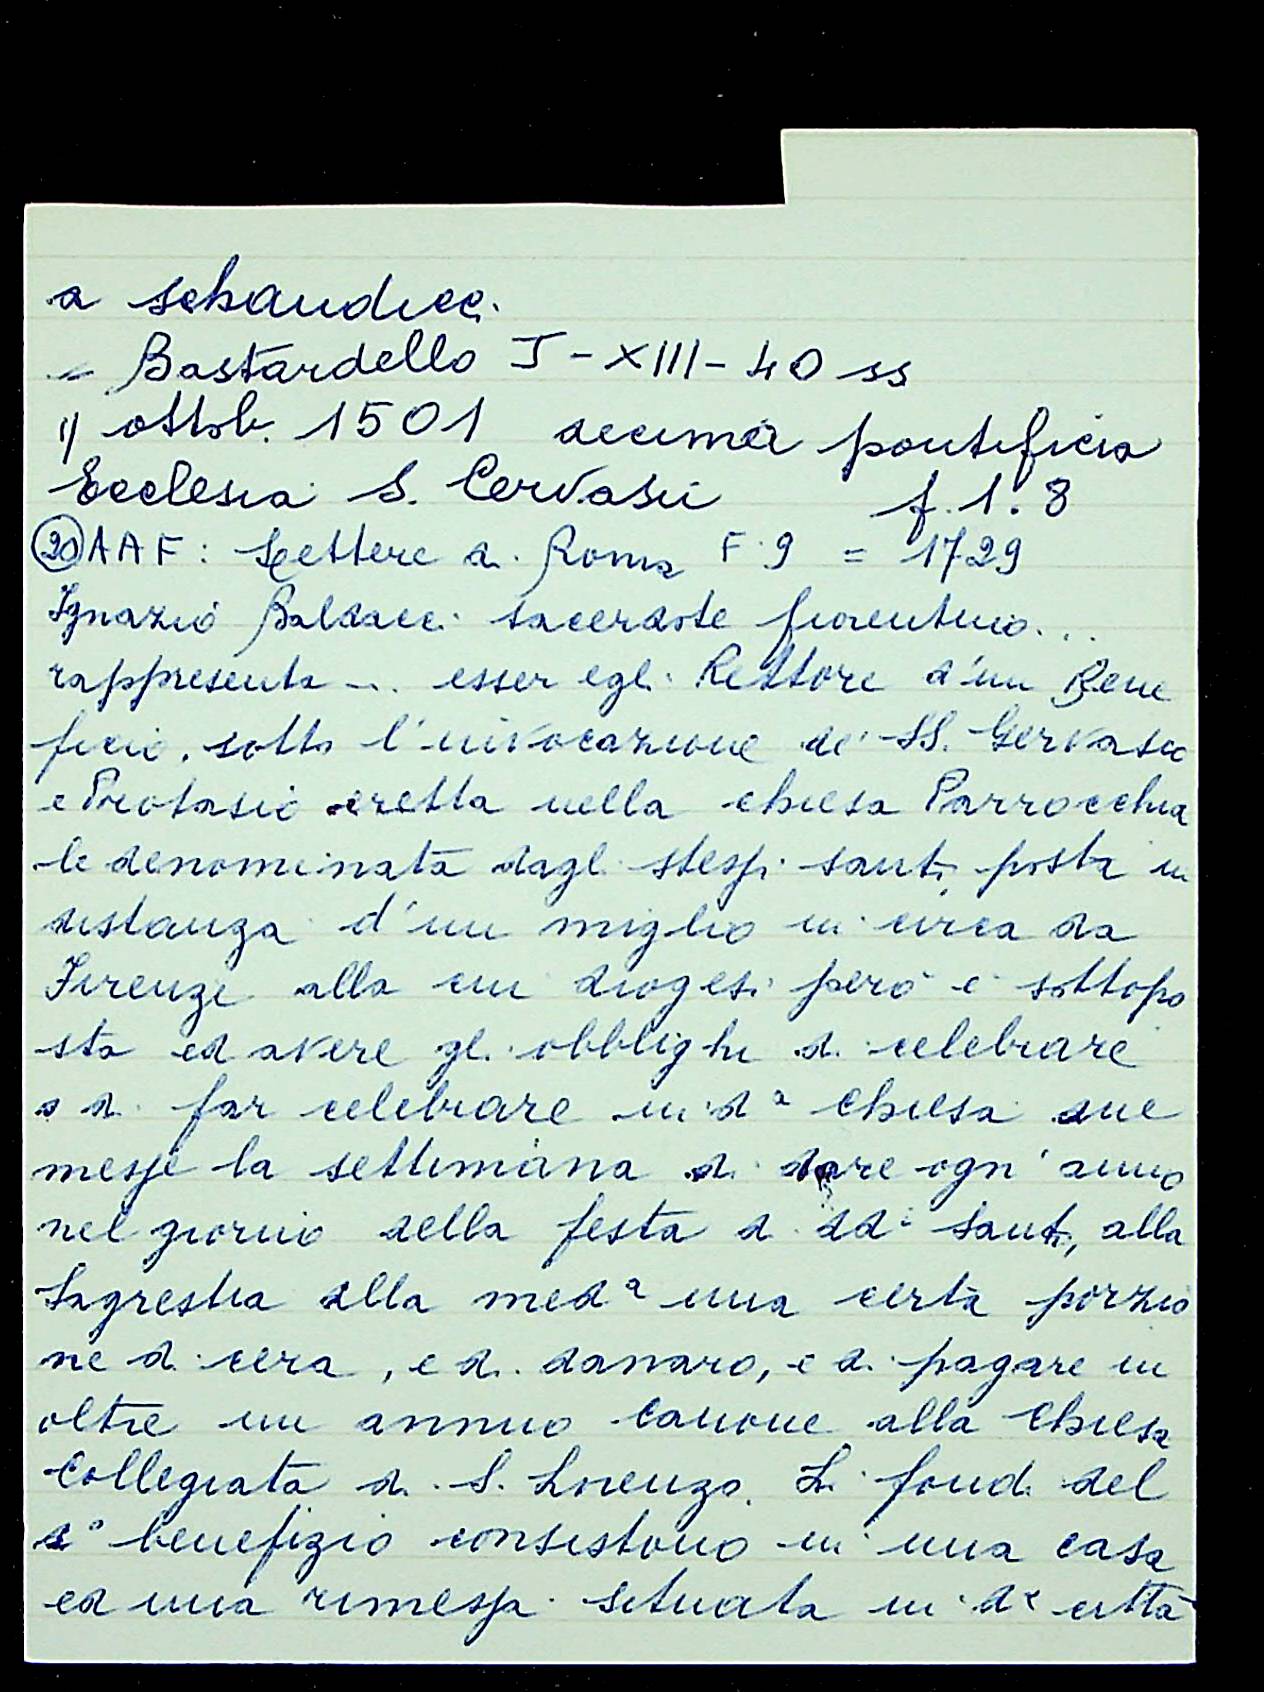 a schaudicc.
= Bastardello I-XIII-40 ss
1) ottob. 1501 decima pontificia
Ecclesia S. Cervasii f. 1. 8
(20) AAF: Lettere di Roma F. 9 = 1729
Ignazio Baldacci sacerdote fiorentino...
rappresenta ... esser egli Rettore d'un Bene
ficio, sotto l'invocazione de' SS. Gervasio
e Protasio eretta nella chiesa Parrocchia
le denominata dagli stessi santi, posta in
distanza d'un miglio in circa da
Firenze alla cui diogesi però è sottopo
sta ed avere gli obblighi di celebrare
o di far celebrare in dª Chiesa due
messe la settimana di dare ogn'anno
nel giorno della festa di ddi Santi, alla
Sagrestia alla medª una certa porzio
ne di cera, e di danaro, e di pagare in
oltre un annuo canone alla Chiesa
Collegiata di S. Lorenzo. Li fondi del
d° benefizio consistono in una casa
ed una rimessa situata in dª città